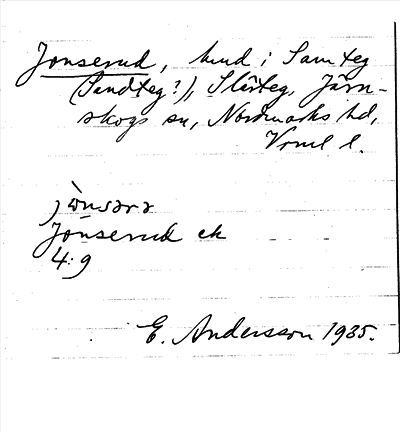 Jonserud, hmd i Samteg
(Sandteg?), Slärteg, Järn-
skogs sn, Nordmarks hd,
Vrml l.
Jonserud ek
4:9
E. Andersson 1935.